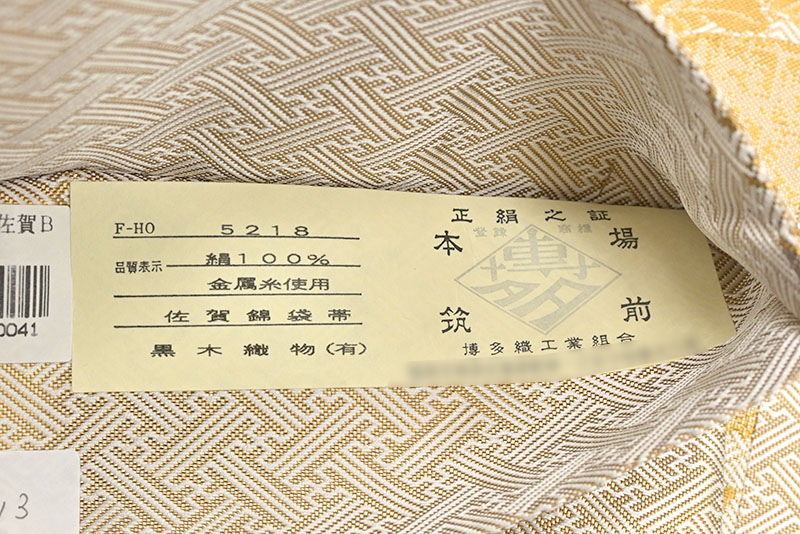 佐賀B
0041
F-HO 5218
品質表示 絹100%
金属糸使用
佐賀錦袋帯
黒木織物(有)
正絹之証
登録 商標
本場
博多
筑前
博多織工業組合